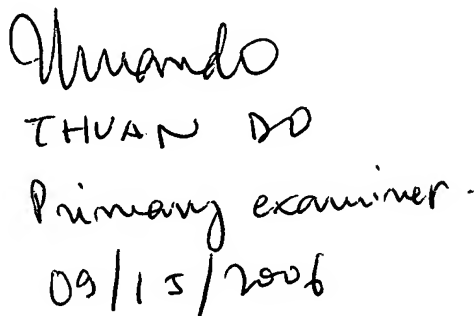 Thuando
THUAN DO
Primary examiner.
09/15/2006